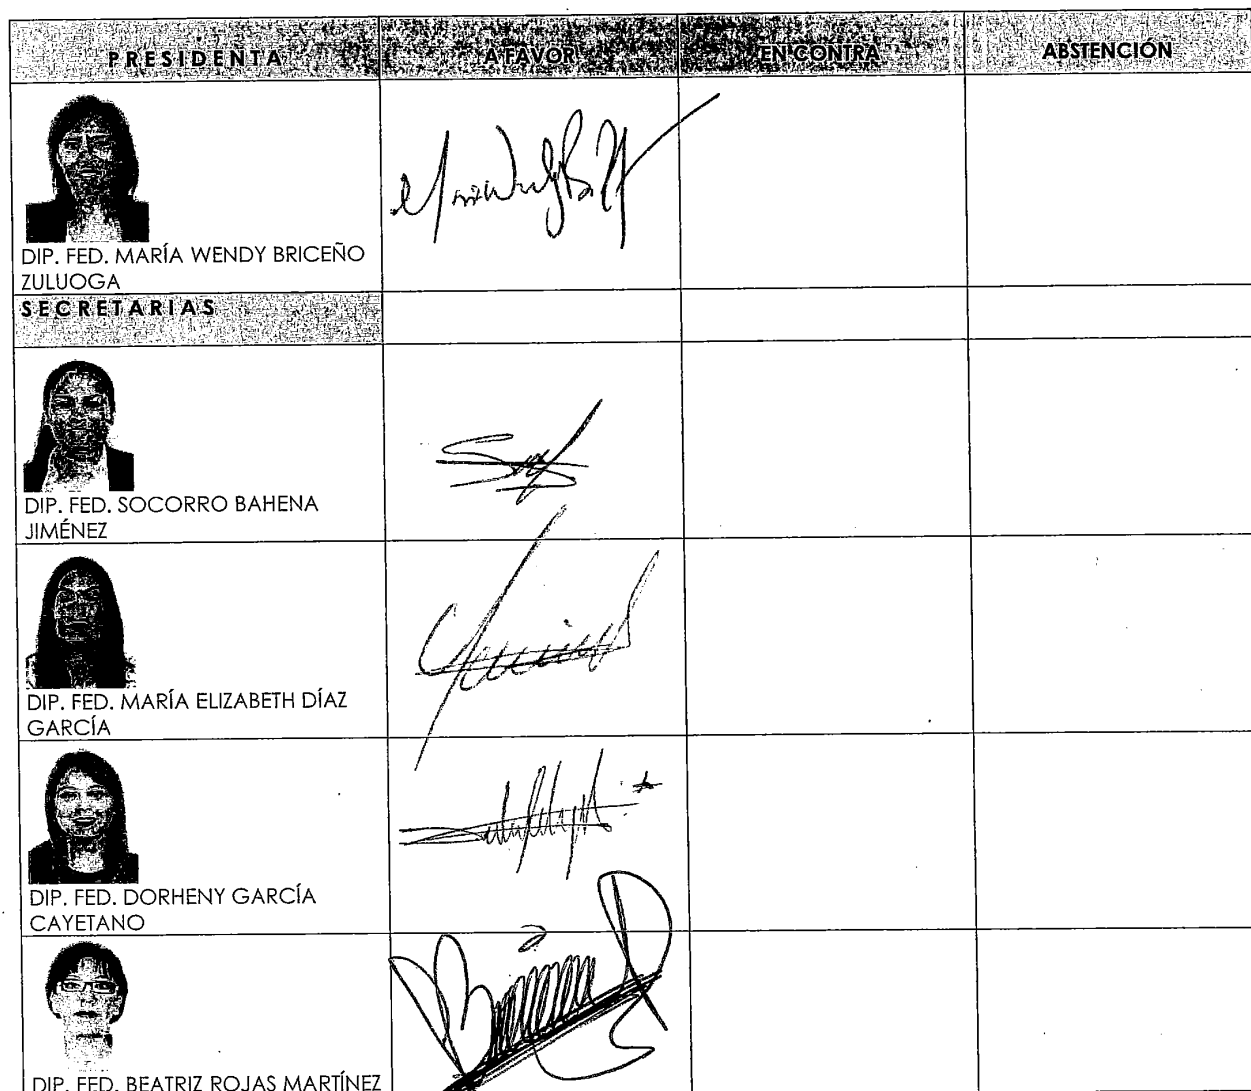 PRESIDENTA A FAVOR EN CONTRA ABSTENCIÓN
DIP. FED. MARÍA WENDY BRICEÑO
ZULUOGA
SECRETARIAS
DIP. FED. SOCORRO BAHENA
JIMÉNEZ
DIP. FED. MARÍA ELIZABETH DÍAZ
GARCÍA
DIP. FED. DORHENY GARCÍA
CAYETANO
DIP. FED. BEATRIZ ROJAS MARTÍNEZ